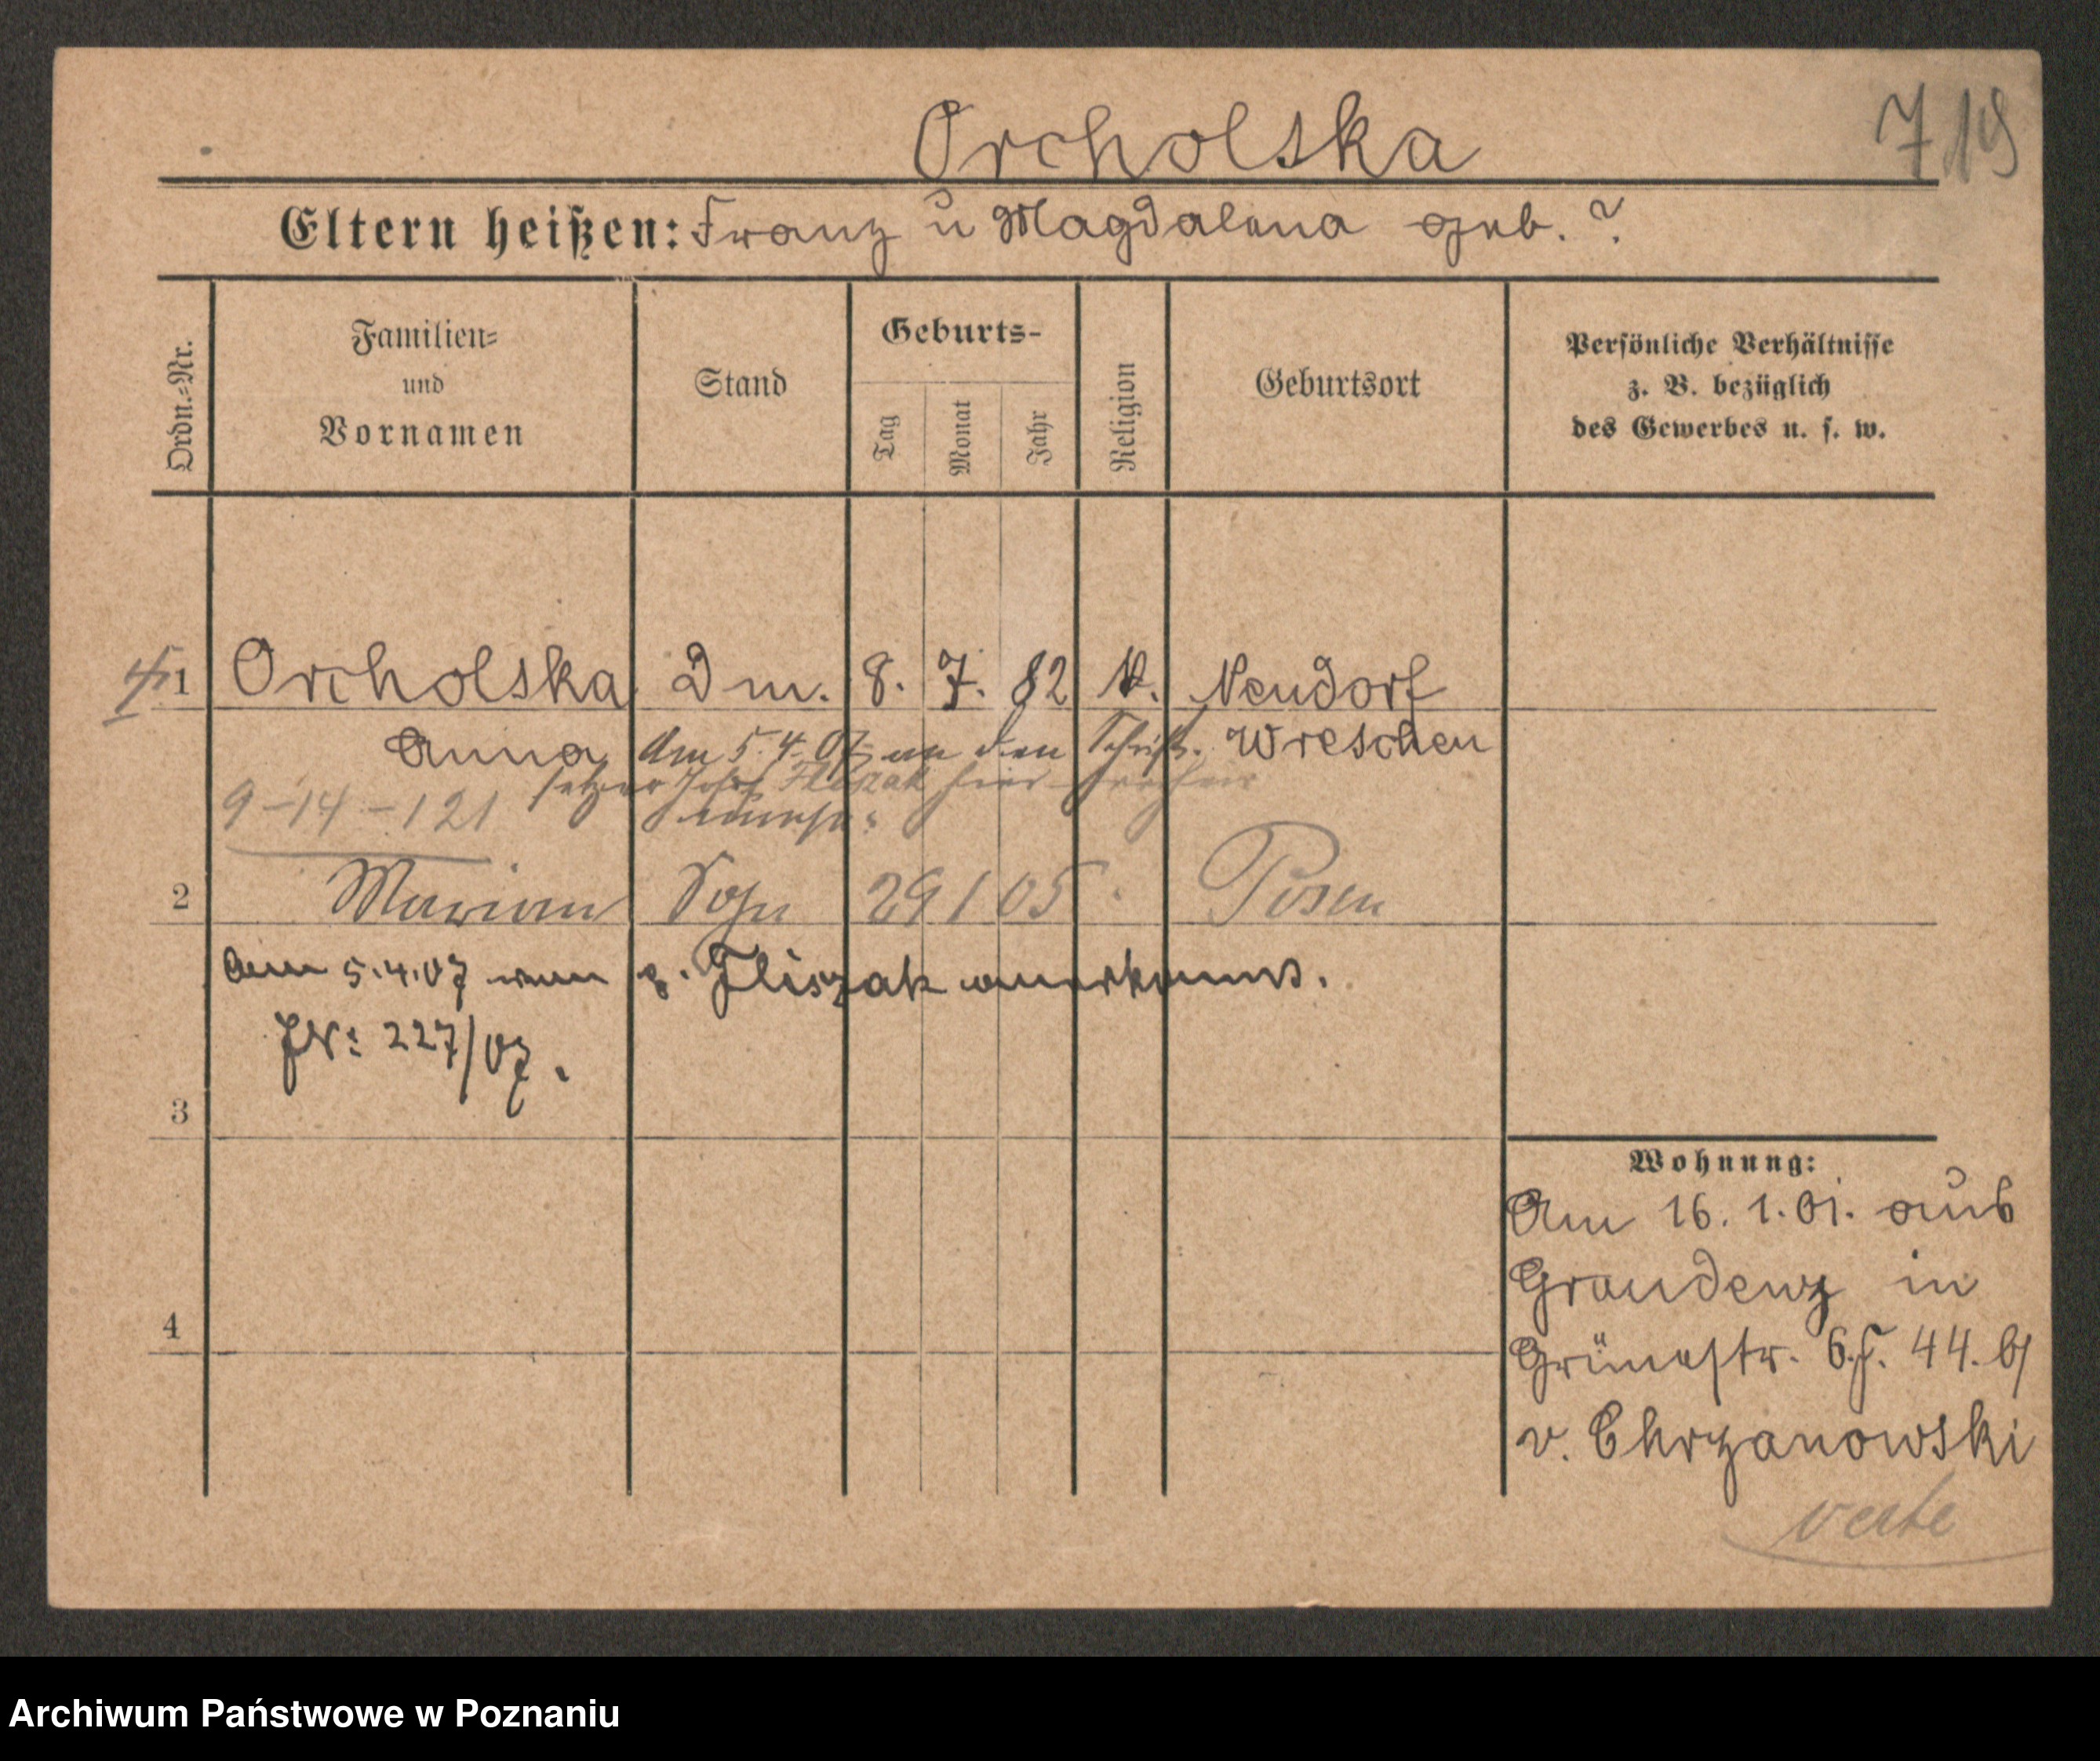 Orcholska
719
Eltern heißen: Franz u Magdalena geb. ?
Ordn.-Nr.
Familien-
und
Vornamen
Stand
Geburts-
Tag
Monat
Jahr
Religion
Geburtsort
Persönliche Verhältnisse
z. B. bezüglich
des Gewerbes u. s. w.
1 Orcholska Dm. 8. 7. 82 k. Neudorf
Anna Wreschen
Am 5.4.07 an den Schrift-
setzer Josef Fliszak hier
9-14-121
2 Marian Sohn 29 1 05 Posen
Am 5.4.07 von p. Fliszak anerkannt.
JN: 227/07.
3
4
Wohnung:
Am 16. 1. 01. aus
Graudenz in
Grünestr. 6. 44. b/
v. Chrzanowski
verte
Archiwum Państwowe w Poznaniu